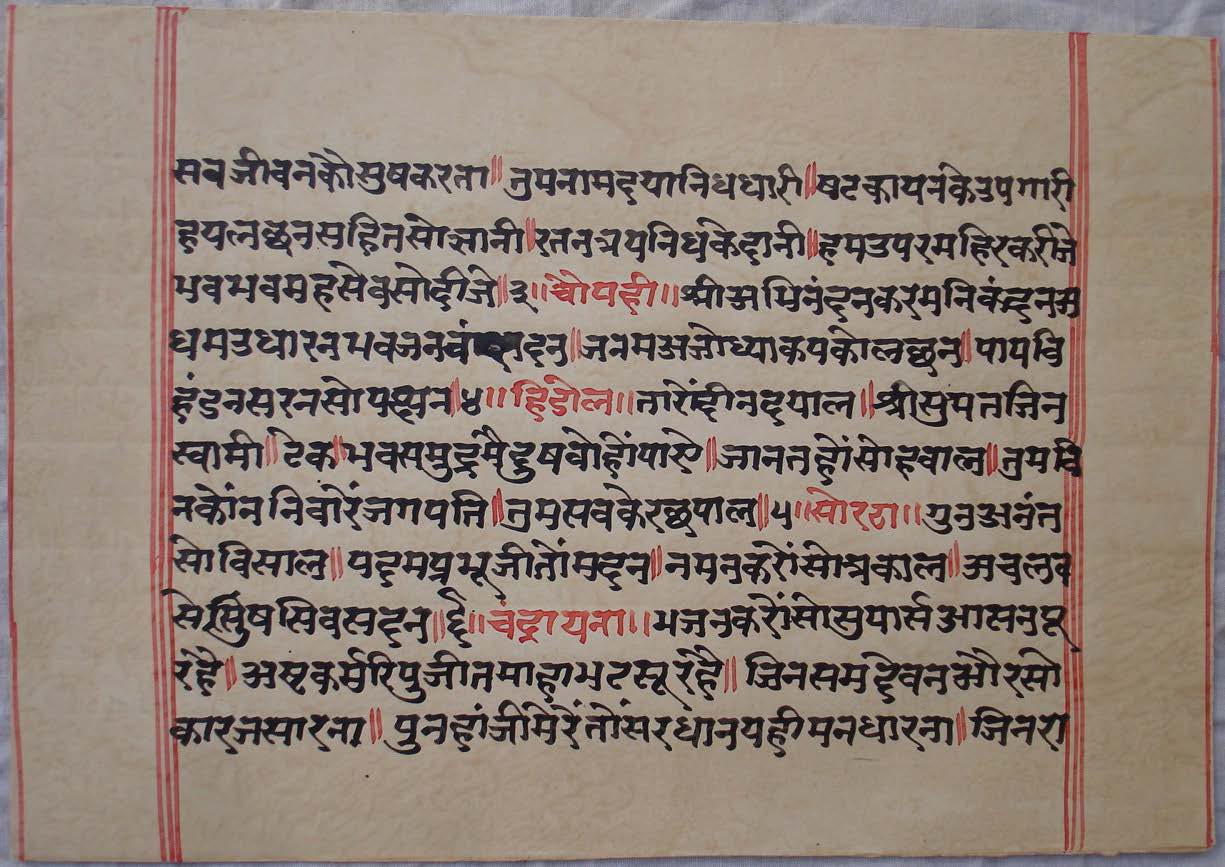 सब जीवनकौ सुषकरता॥ तुमनामदयानिधधारी॥ षटकायनकेउपगारी
हयलछनसहितसोग्यानी॥ रतनत्रयनिधकेदानी॥ हमउपरमहिरकरीजे
भवभवमहसेवसोदीजे॥३॥चौपही॥श्रीअभिनंदनकरमनिकंदनअ
धमउधारनभवजन दन॥ जनमअजोध्याकपकोलछन॥ पापवि
हंडनसरनसो ॥४॥हिडोल॥ तारोंदीनदयाल॥ श्रीसुमतजिन
स्वामी॥ टेक॥ भवसमुद्रमैदुषबोहोंपाए॥ जानतहोंसोहवाल॥ तुमवि
नकोंननिवोरेंजगपति॥ तुमसबकेरछपाल॥५॥सोरठा॥ गुनअनंत
सोविसाल॥ पदमप्रभूजीतोंमदन॥ नमनकरोंसोत्रकाल॥ अचलव
सेसुंषसिवसदन॥६॥चंद्रायना॥ भजनकरोंसोसुपार्सआसनपू
रेहै॥ अस्टकर्मरिपुजीतमाहाभटसूरेहै॥ जिनसमदेवनओरसो
कारजसारना॥ पुनहांजीमेरेंतोंसरधानयहीमनधारना॥ जिनरा